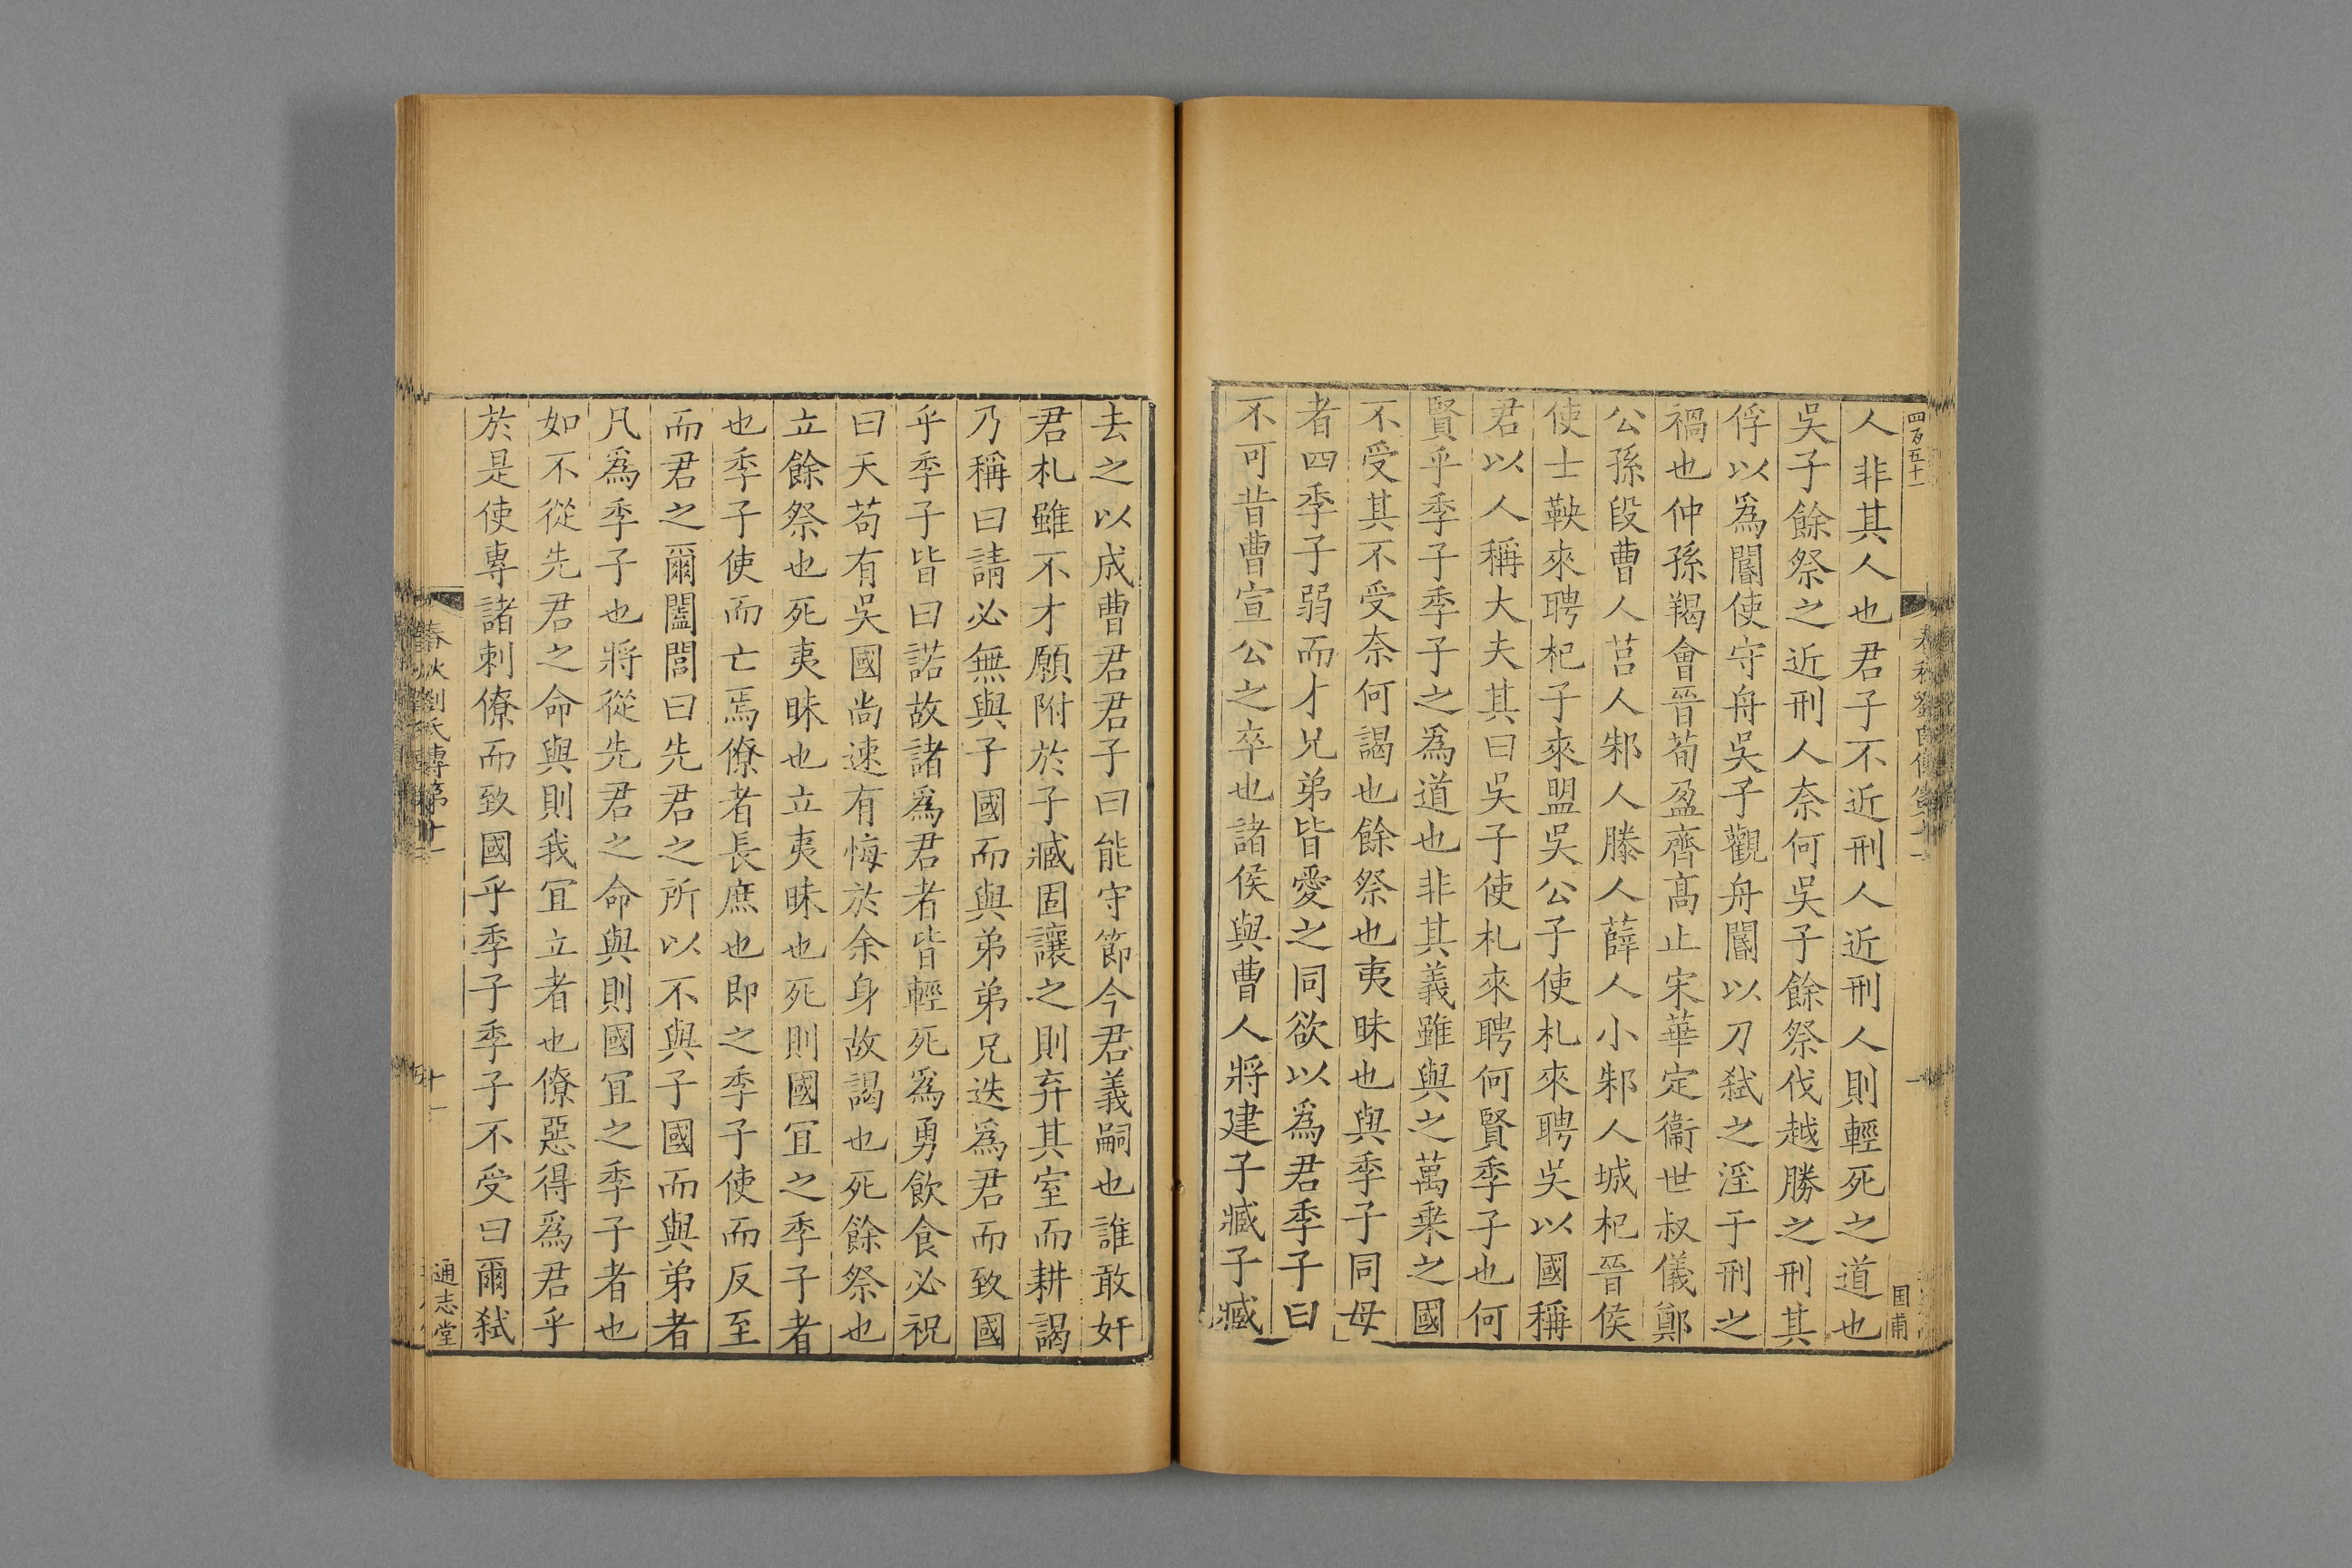 四百五十一
国甫
人非其人也君子不近刑人近刑人則輕死之道也
吳子餘祭之近刑人奈何吳子餘祭伐越勝之刑其
俘以爲閽使守舟吳子觀舟閽以刀弑之淫于刑之
禍也仲孫羯會晉荀盈齊髙止宋華定衞世叔儀鄭
公孫段曹人莒人邾人滕人薛人小邾人城杞晉侯
使士鞅來聘杞子來盟吳公子使札來聘吳以國稱
君以人稱大夫其曰吳子使札來聘何賢季子也何
賢乎季子季子之爲道也非其義雖與之萬乗之國
不受其不受奈何謁也餘祭也夷昧也與季子同母
者四季子弱而才兄弟皆愛之同欲以爲君季子曰
不可昔曹宣公之卒也諸侯與曹人將建子臧子臧
去之以成曹君君子曰能守節今君義嗣也誰敢奸
君札雖不才願附於子臧固讓之則弃其室而耕謁
乃稱曰請必無與子國而與弟弟兄迭爲君而致國
乎季子皆曰諾故諸爲君者皆輕死爲勇飲食必祝
曰天苟有吳國尚速有悔於余身故謁也死餘祭也
立餘祭也死夷昧也立夷昧也死則國冝之季子者
也季子使而亡焉僚者長庶也即之季子使而反至
而君之爾闔閭曰先君之所以不與子國而與弟者
凡爲季子也將從先君之命與則國冝之季子者也
如不從先君之命與則我冝立者也僚惡得爲君乎
於是使專諸刺僚而致國乎季子季子不受曰爾弑
春秋劉氏傳第十一
十一
通志堂